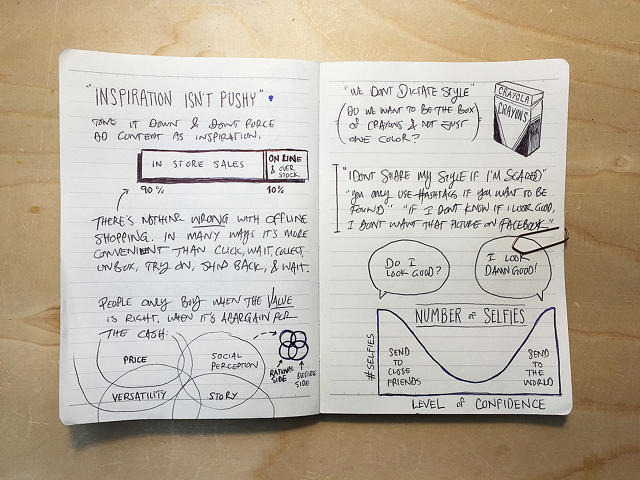 "INSPIRATION ISN'T PUSHY"
TONE IT DOWN & DON'T FORCE
AD CONTENT AS INSPIRATION.
IN STORE SALES
ONLINE
& OVER
STOCK
90% 10%
THERE'S NOTHING WRONG WITH OFFLINE
SHOPPING. IN MANY WAYS IT'S MORE
CONVENIENT THAN CLICK, WAIT, COLLECT,
UNBOX, TRY ON, SHIP BACK, & WAIT.
PEOPLE ONLY BUY WHEN THE VALUE
IS RIGHT. WHEN IT'S A BARGAIN FOR
THE CASH.
PRICE
SOCIAL
PERCEPTION
VERSATILITY
STORY
RATIONAL
SIDE
DESIRE
SIDE
"WE DON'T DICTATE STYLE"
(DO WE WANT TO BE THE BOX
OF CRAYONS & NOT JUST
ONE COLOR?)
CRAYOLA
CRAYONS
"I DON'T SHARE MY STYLE IF I'M SCARED"
"YOU ONLY USE HASHTAGS IF YOU WANT TO BE
FOUND" "IF I DON'T KNOW IF I LOOK GOOD,
I DON'T WANT THAT PICTURE ON FACEBOOK."
DO I
LOOK GOOD?
I LOOK
DAMN GOOD!
NUMBER of SELFIES
# SELFIES
SEND
TO
CLOSE
FRIENDS
SEND
TO
THE
WORLD
LEVEL of CONFIDENCE